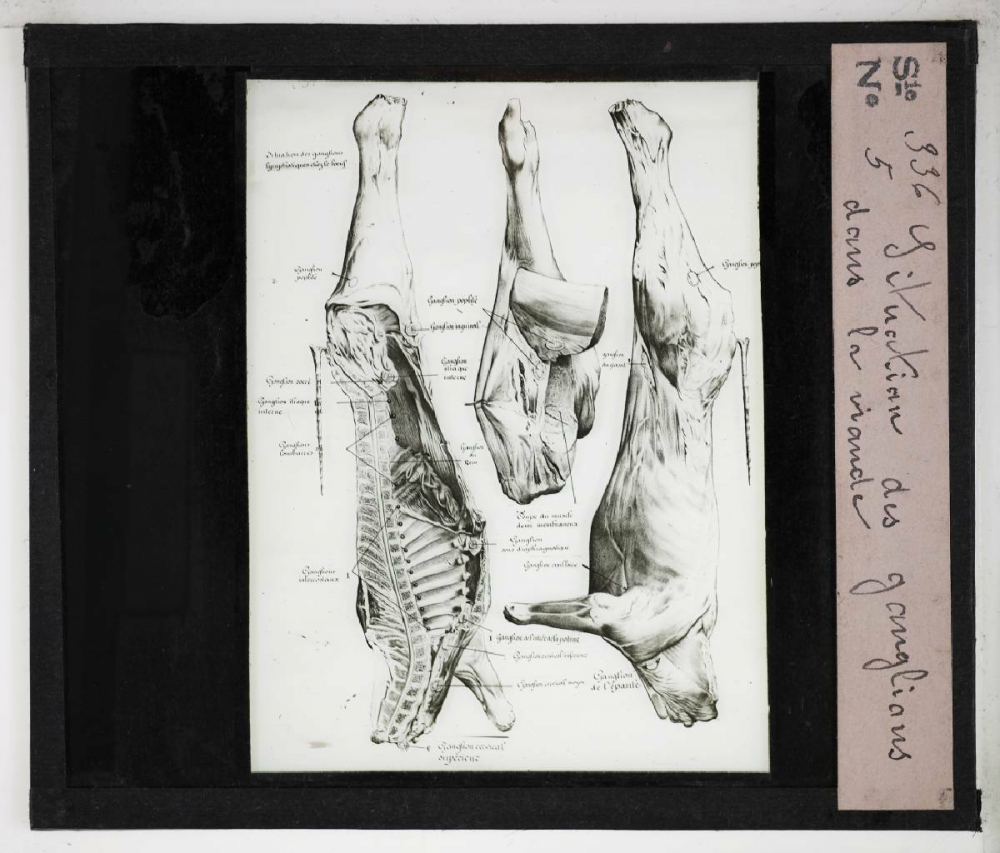 Sie 336 Situation des ganglions
No 5 dans la viande
Situation des ganglions
lymphatiques chez le bœuf
Ganglion
poplité
Ganglion poplité
Ganglion inguinal
Ganglion
iliaque
interne
Ganglion sacré
Ganglion iliaque
interne
Ganglions
lombaires
Ganglion
du
rein
Ganglion
du grasset
Coupe du muscle
demi membraneux
Ganglion
sous diaphragmatique
Ganglion axillaire
Ganglions
intercostaux
Ganglion de l'entrée de la poitrine
Ganglion cervical inférieur
Ganglion cervical moyen
Ganglion
de l'épaule
Ganglion cervical
supérieur